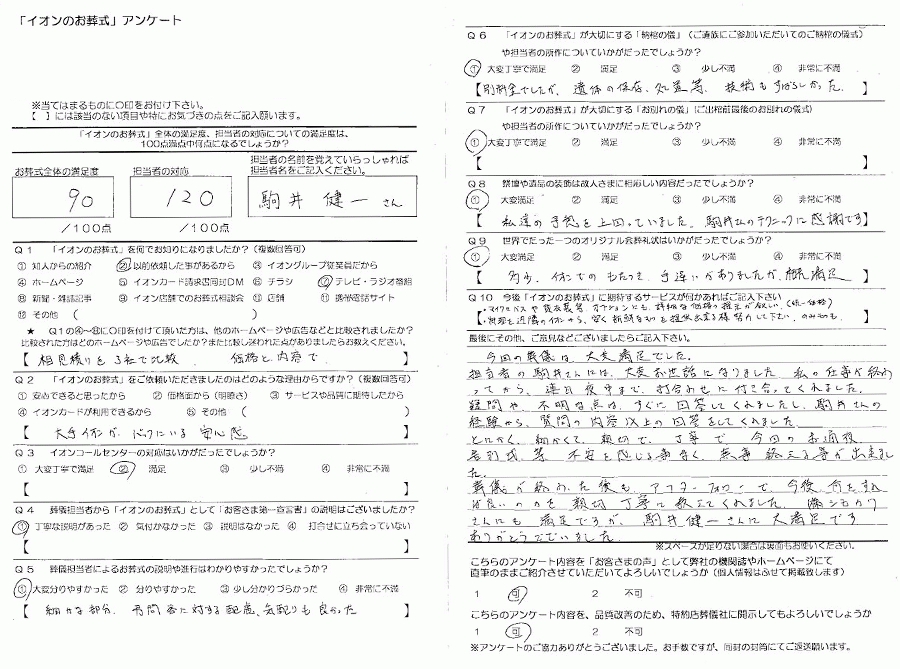 「イオンのお葬式」アンケート
※当てはまるものに〇印をお付け下さい。
【　】には該当のない項目や特にお気づきの点をご記入願います。
「イオンのお葬式」全体の満足度、担当者の対応についての満足度は、
100点満点中何点になるでしょうか？
お葬式全体の満足度
担当者の対応
担当者の名前を覚えていらっしゃれば
担当者名をご記入ください。
90
120
駒井 健一 さん
／100点
／100点
Q1 「イオンのお葬式」を何でお知りになりましたか？（複数回答可）
① 知人からの紹介 ② 以前依頼した事があるから ③ イオングループ従業員だから
④ ホームページ ⑤ イオンカード請求書同封DM ⑥ チラシ ⑦ テレビ・ラジオ番組
⑧ 新聞・雑誌記事 ⑨ イオン店舗でのお葬式相談会 ⑩ 店舗 ⑪ 携帯電話サイト
⑫ その他（　　）
★ Q1の④～⑧に〇印を付けて頂いた方は、他のホームページや広告などと比較されましたか？
比較された方はどのホームページや広告でしたか？また比較し迷われた点がありましたらお教えください。
【 相見積りを3社で比較 価格と内容で 】
Q2 「イオンのお葬式」をご依頼いただきましたのはどのような理由からですか？（複数回答可）
① 安心できると思ったから ② 価格面から（明瞭さ） ③ サービスや品質に期待したから
④ イオンカードが利用できるから ⑤ その他（　　）
【 大手イオンが、バックにいる 安心感 】
Q3 イオンコールセンターの対応はいかがだったでしょうか？
① 大変丁寧で満足 ② 満足 ③ 少し不満 ④ 非常に不満
【　　】
Q4 葬儀担当者から「イオンのお葬式」として「お客さま第一宣言書」の説明はございましたか？
① 丁寧な説明があった ② 気付かなかった ③ 説明はなかった ④ 打合せに立ち会っていない
【　　】
Q5 葬儀担当者によるお葬式の説明や進行はわかりやすかったでしょうか？
① 大変分りやすかった ② 分りやすかった ③ 少し分かりづらかった ④ 非常に不満
【 細かな部分、弔問客に対する配慮、気配りも良かった 】
Q6 「イオンのお葬式」が大切にする「納棺の儀」（ご遺族にご参加いただいてのご納棺の儀式）
や担当者の所作についていかがだったでしょうか？
① 大変丁寧で満足 ② 満足 ③ 少し不満 ④ 非常に不満
【 別料金でしたが、遺体の保存、処置等、技術もすばらしかった。 】
Q7 「イオンのお葬式」が大切にする「お別れの儀」（ご出棺前最後のお別れの儀式）
や担当者の所作についていかがだったでしょうか？
① 大変丁寧で満足 ② 満足 ③ 少し不満 ④ 非常に不満
【　　】
Q8 祭壇や遺品の装飾は故人さまに相応しい内容だったでしょうか？
① 大変満足 ② 満足 ③ 少し不満 ④ 非常に不満
【 私達の予想を上回っていました。駒井さんのテクニックに感謝です 】
Q9 世界でたった一つのオリジナル会葬礼状はいかがだったでしょうか？
① 大変満足 ② 満足 ③ 少し不満 ④ 非常に不満
【 多少、イオンでの 手違いがありましたが、概ね満足 】
Q10 今後「イオンのお葬式」に期待するサービスが何かあればご記入下さい
・マイクロバスや貸衣装等、オプションにも、詳細な価格の提示が欲しい（統一価格）
最後にその他、ご意見などございましたらご記入下さい。
今回の葬儀は、大変満足でした。
担当者の駒井さんには、大変お世話になりました。私の仕事が終わ
ってから、連日夜半まで、打合わせに付き合ってくれました。
疑問や、不明な点は、すぐに回答してくれましたし、駒井さんの
経験から、質問の内容以上の回答をしてくれました。
とにかく、細かくて、親切で、丁寧で、今回のお通夜、
告別式等、不安を感じる事なく、無事終える事が出来まし
た。
葬儀が終わった後も、アフターフォローで、今後、何をすれ
ば良いのかを親切丁寧に教えてくれました。
さんにも満足ですが、駒井健一さんに大満足です
ありがとうございました。
※スペースが足りない場合は裏面もお使いください。
こちらのアンケート内容を「お客さまの声」として弊社の機関誌やホームページにて
直筆のままご紹介させていただいてよろしいでしょうか（個人情報はふせて掲載致します）
1 可 2 不可
こちらのアンケート内容を、品質改善のため、特約店葬儀社に開示してもよろしいでしょうか
1 可 2 不可
※アンケートのご協力ありがとうございました。お手数ですが、同封の封筒にてご返送願います。